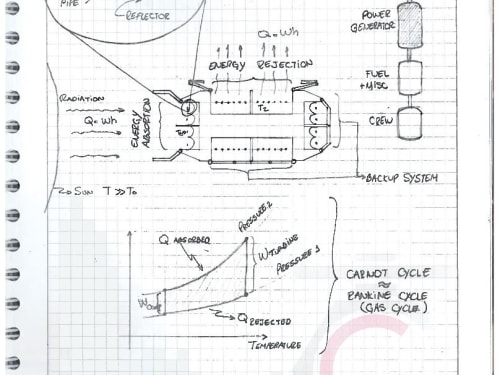 PIPE
REFLECTOR
POWER
GENERATOR
FUEL
+ MISC
CREW
Q=Wh
Q=Wh
ENERGY REJECTION
RADIATION
Q=Wh
ENERGY
ABSORTION
T2
BACKUP SYSTEM
SUN T >> To
PRESSURE 2
Q ABSORBED
W TURBINE
PRESSURE 1
Q REJECTED
TEMPERATURE
CARNOT CYCLE
≈
RANKINE CYCLE
(GAS CYCLE)